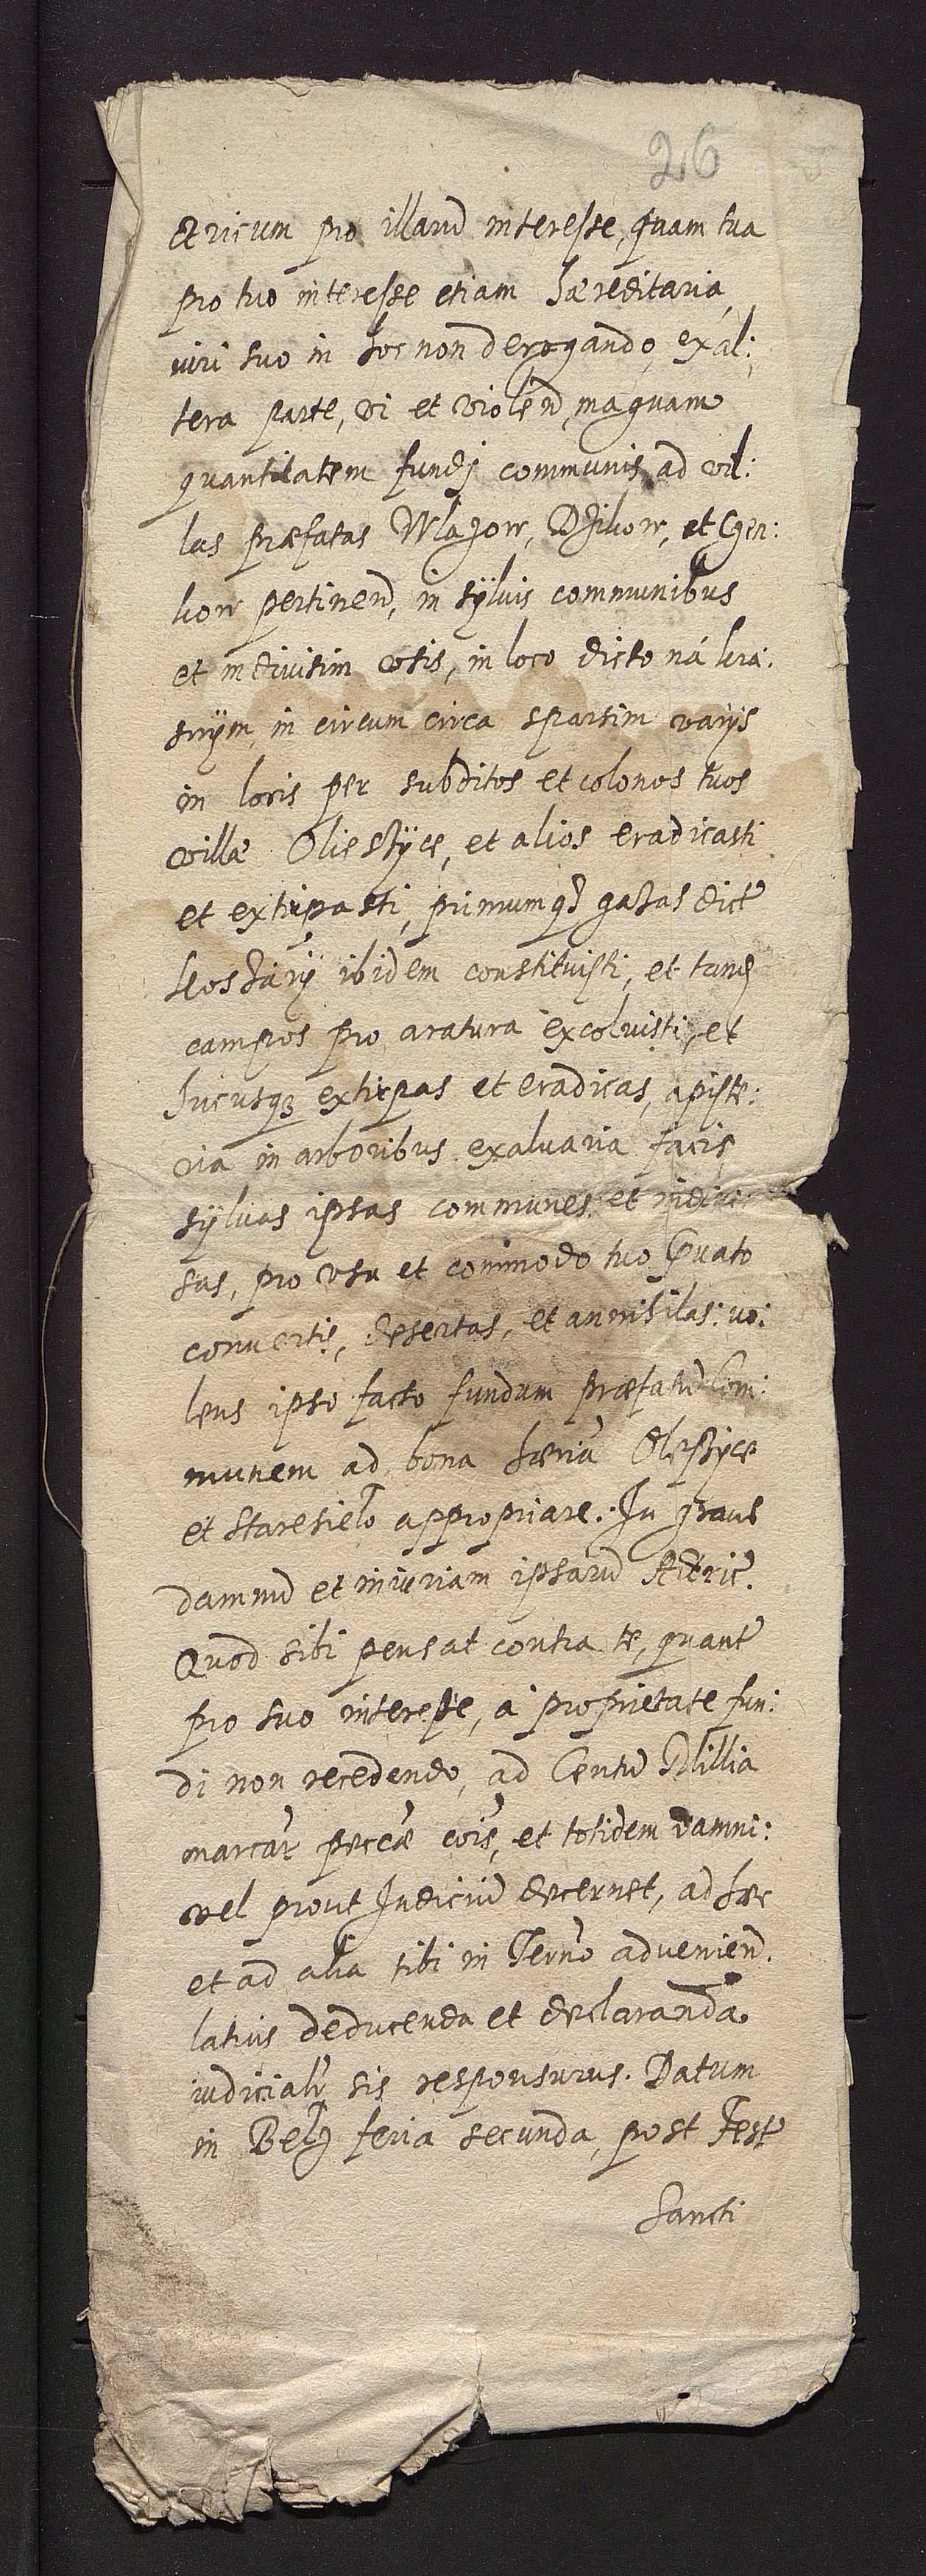 26
ctricum pro illarud interesse, quam tua
pro tuo interesse etiam haereditaria,
iuri suo in hoc non derogando, ex al:
tera parte, vi et violend, magnam
quantitatem fundj communis, ad vil:
las præfatas Wlazow, Dzikow, et Cgen:
kow pertinend, in sÿluis communibus
et indiuisim vsis, in loco dicto ná
in circum circa sparsim varÿs
in locis per subditos et colonos tuos
villæ Olieszÿce, et alios eradicasti
et extirpasti, primumq3 gazas dict
ibidem constituisti, et tand
campos pro aratura excoluisti, et
hucusq3 extirpas et eradicas, apiste:
ria in arboribus exaluaria facis,
sÿluas ipsas communes et indiui:
sas, pro vsu et commodo tuo Priuato
conuertis, desertas, et annihilas: vo:
lens ipso facto fundum præfatud Com:
munem ad bona hæria Oleszyce
et Staresielo appropriare. In graue
damnud et iniuriam ipsarud Actric.
Quod sibi pensat contra te, quant
pro suo interesse, á proprietate fun:
di non recedendo, ad Centud Millia
marcar peccæ cois, et totidem damni:
vel prout Judiciud decernet, ad hæc
et ad alia tibi in Termo adueniend.
latius deducenda et declaranda
iudicialr sis responsurus. Datum
in Belz feria secunda, post Fest
Sancti